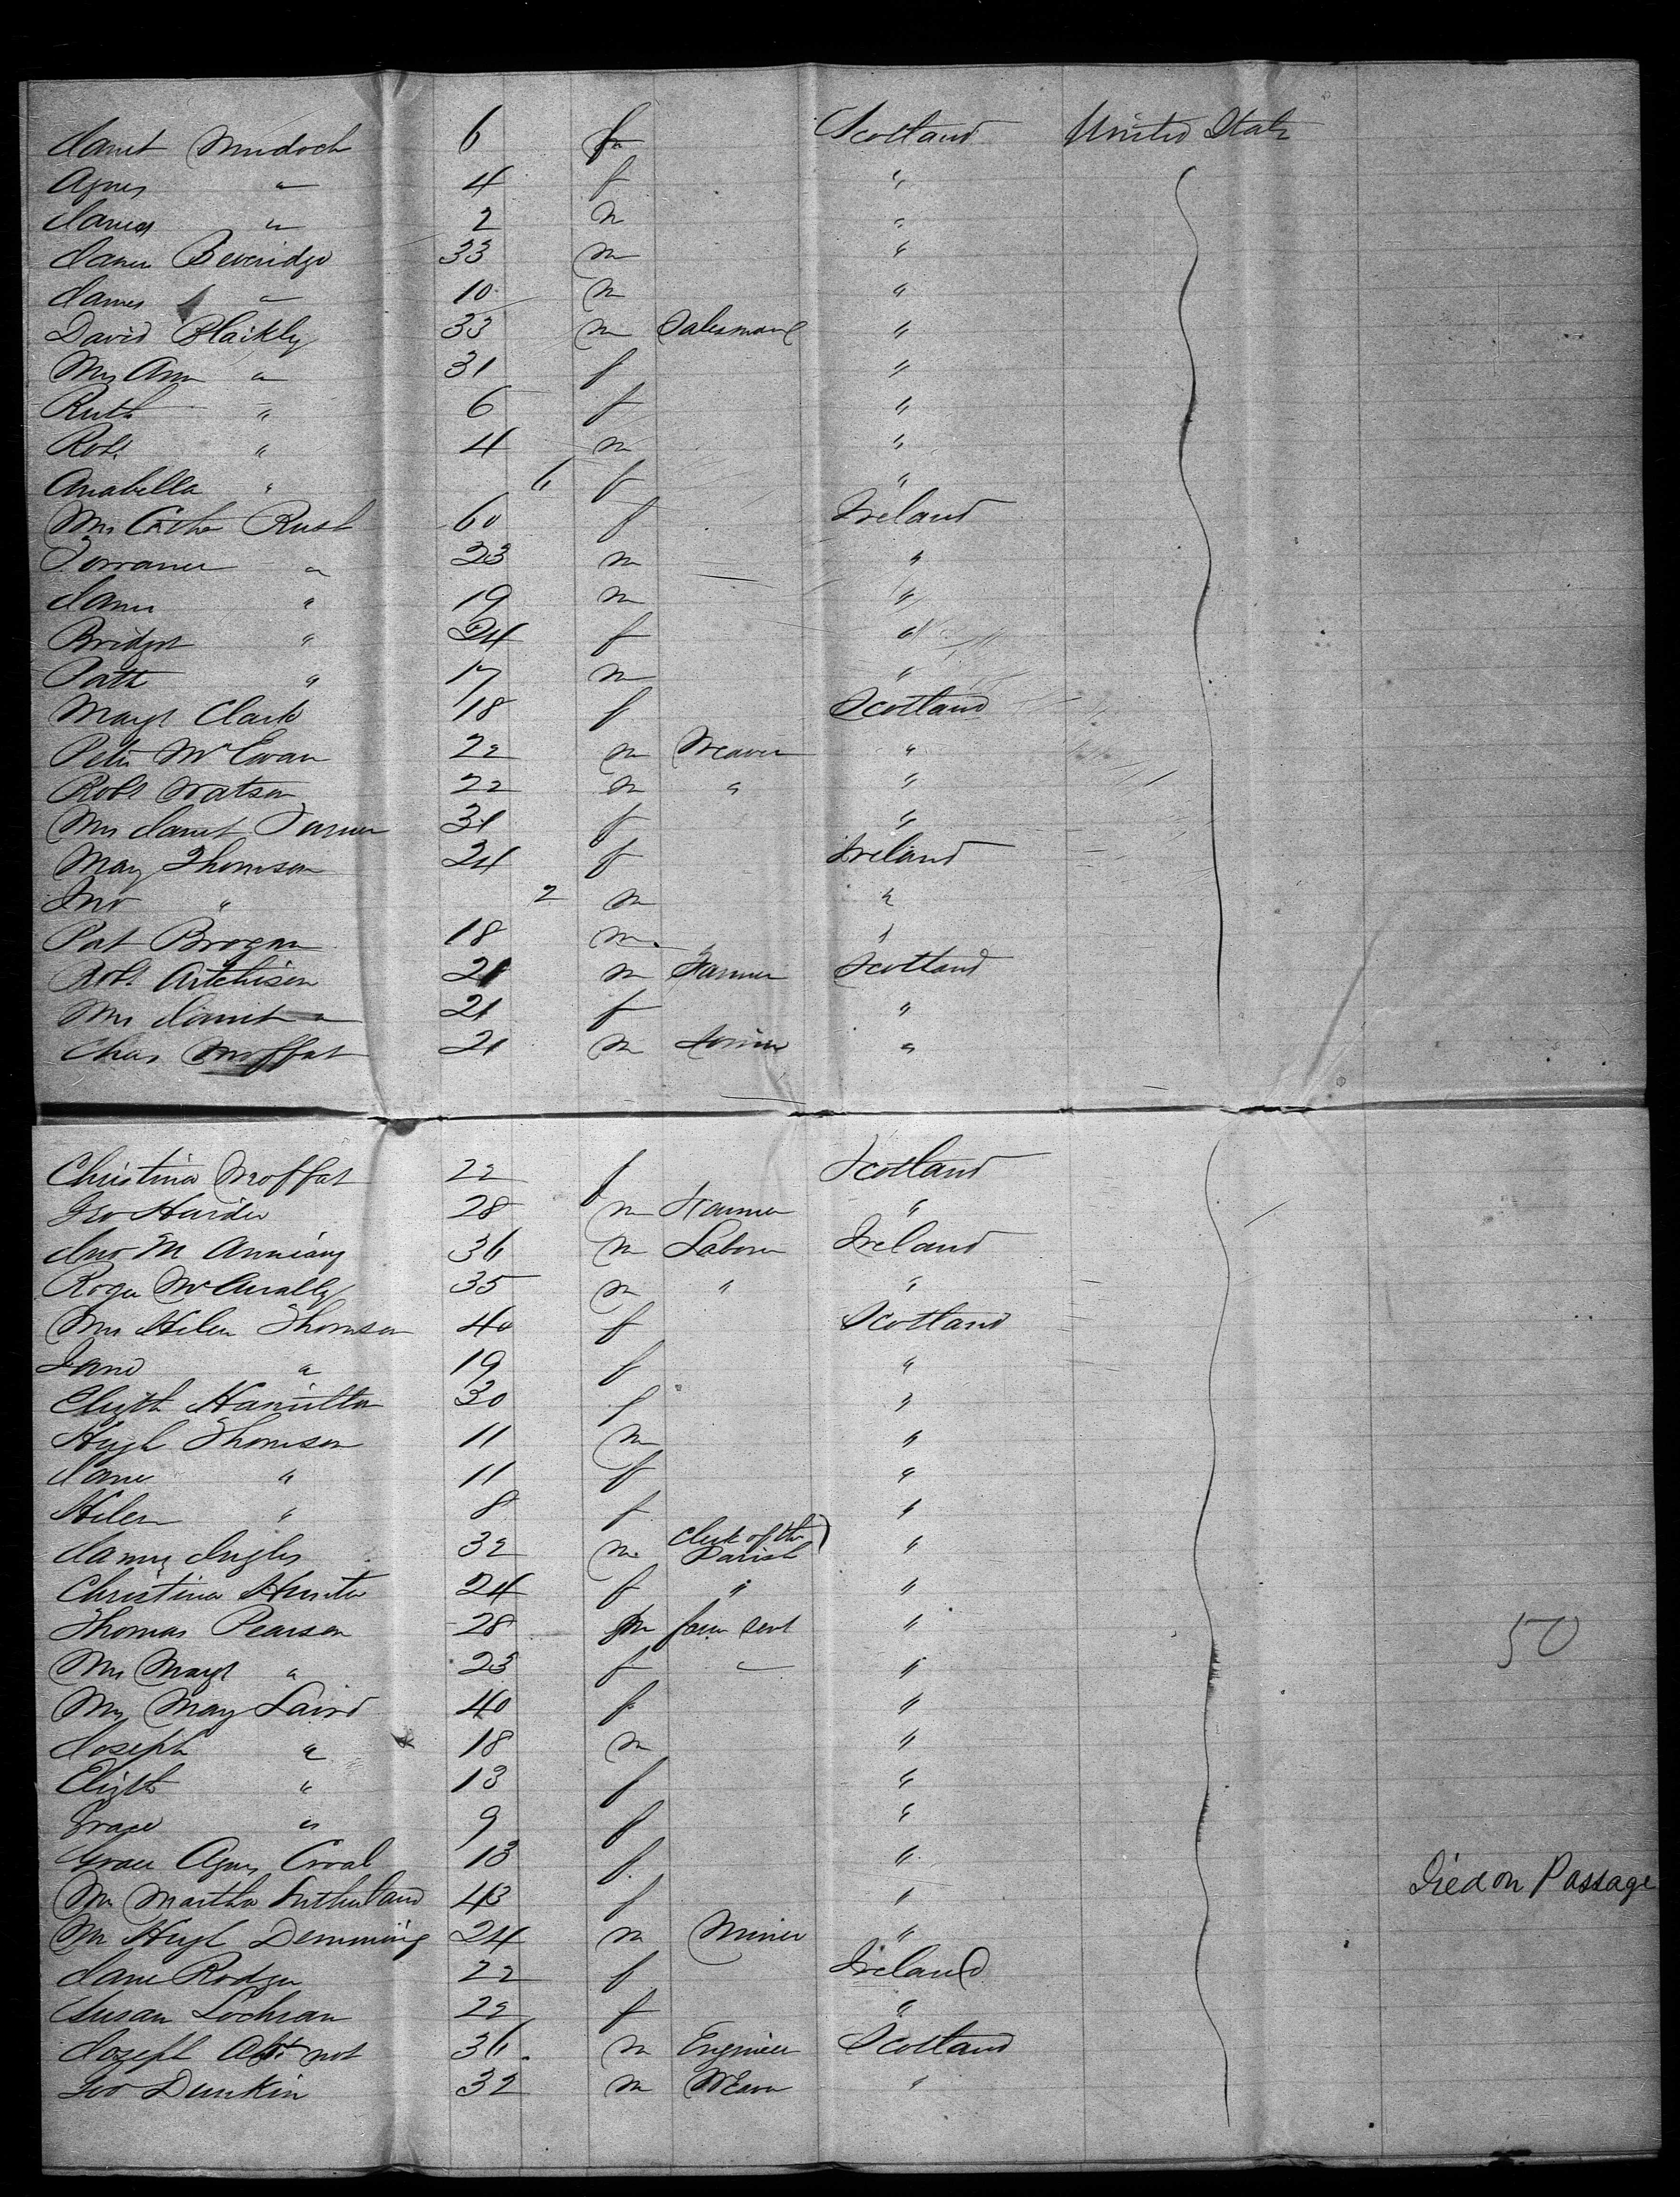 Janet Murdoch 6 f Scotland United States
Agnes " 4 f "
James " 2 m "
James Beveridge 33 m "
James " 10 m "
David Blaikly 33 m Salesman "
Mrs Ann " 31 f "
Ruth " 6 f "
Robt " 4 m "
Anabella " 6 f "
Mrs Cathe Rush 60 f Ireland
" 23 m "
James " 19 m "
Bridget " 24 f "
Patk " 17 m "
Margt Clark 18 f Scotland
Peter McEwan 22 m Weaver "
Robt Watson 22 m " "
Mrs Janet Turner 31 f "
Mary Thomson 24 f Ireland
Jno " 2 m "
Pat Brogan 18 m "
Robt Aitchison 21 m Farmer Scotland
Mrs Janet " 21 f "
Chas Moffat 21 m "
Christina Moffat 22 f Scotland
Geo 28 m Farmer "
Jno M 36 m Labore Ireland
Roger 35 m " "
Mrs Helen Thomson 40 f Scotland
Jane " 19 f "
Elizth Hamilton 30 f "
Hugh Thomson 11 m "
Jane " 11 f "
Helen " 8 f "
James Inglis 32 m Clerk of the Parish "
Christina Hunter 24 f " "
Thomas Pearson 28 m farm Servt "
Mrs Margt " 25 f " "
Mrs Mary Laird 40 f "
Joseph " 18 m "
Elizth " 13 f "
Grace " 9 f "
Grace Agnes Croal 13 f "
Mrs Martha Sutherland 43 f " Died on Passage
Mr Hugh Demming 24 m Miner "
Jane Rodger 22 f Ireland
Susan Lochran 22 f "
Joseph 36 m Engineer Scotland
Geo Dunkin 32 m Weaver "
50